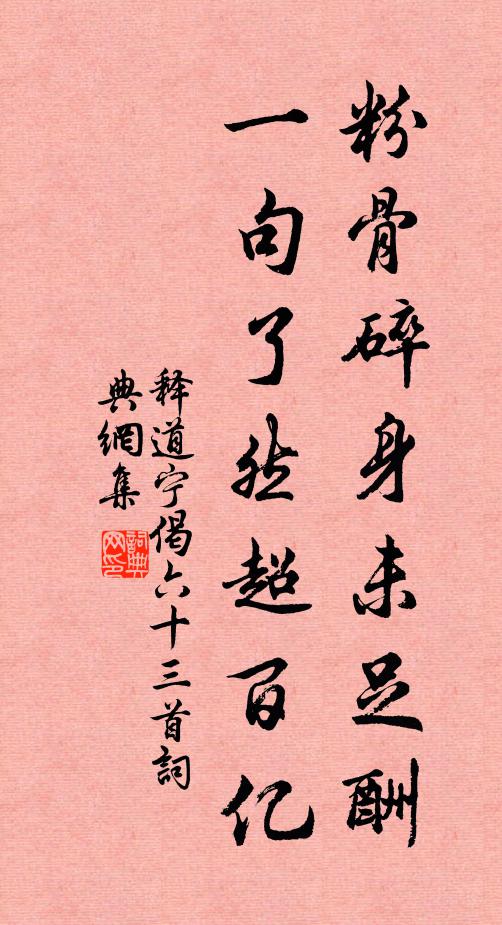 粉骨碎身未足酬
一句了然超百亿
释道宁偈六十三首詞
典網集
詞典
网印